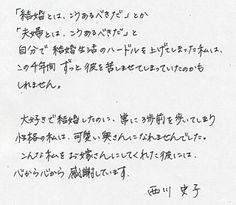 「結婚とは、こうあるべきだ」とか
「夫婦とは、こうあるべきだ」と
自分で結婚生活のハードルを上げてしまった私は、
この4年間ずっと彼を苦しませてしまっていたのかも
しれません。
大好きで結婚したのに、常に3歩前を歩いてしまう
性格の私は、可愛い奥さんになれませんでした。
こんな私をお嫁さんにしてくれた彼には、
心から心から感謝しています。
西川 史子